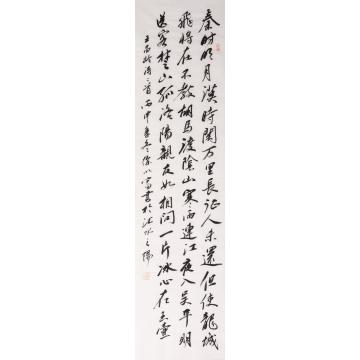 秦时明月漢時関万里長征人未還但使龍城
飛将在不教胡馬渡陰山寒雨連江夜入吴平明
送客楚山孤洛陽親友如相问一片冰心在玉壶
王昌龄诗二首丙申